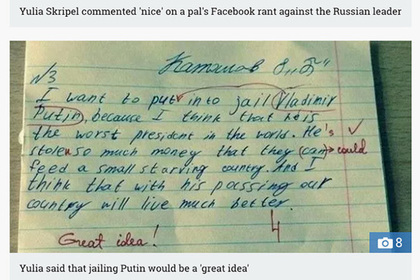 Yulia Skripel commented 'nice' on a pal's Facebook rant against the Russian leader
№3
Катаилов 8 „Б"
I want to put into jail Vladimir
Putin, because I think that he is
the worst president in the world. He's
stolen so much money that they (can) could
feed a small starving country. And I
think that with his passing our
country will live much better.
4
Great idea!
8
Yulia said that jailing Putin would be a 'great idea'